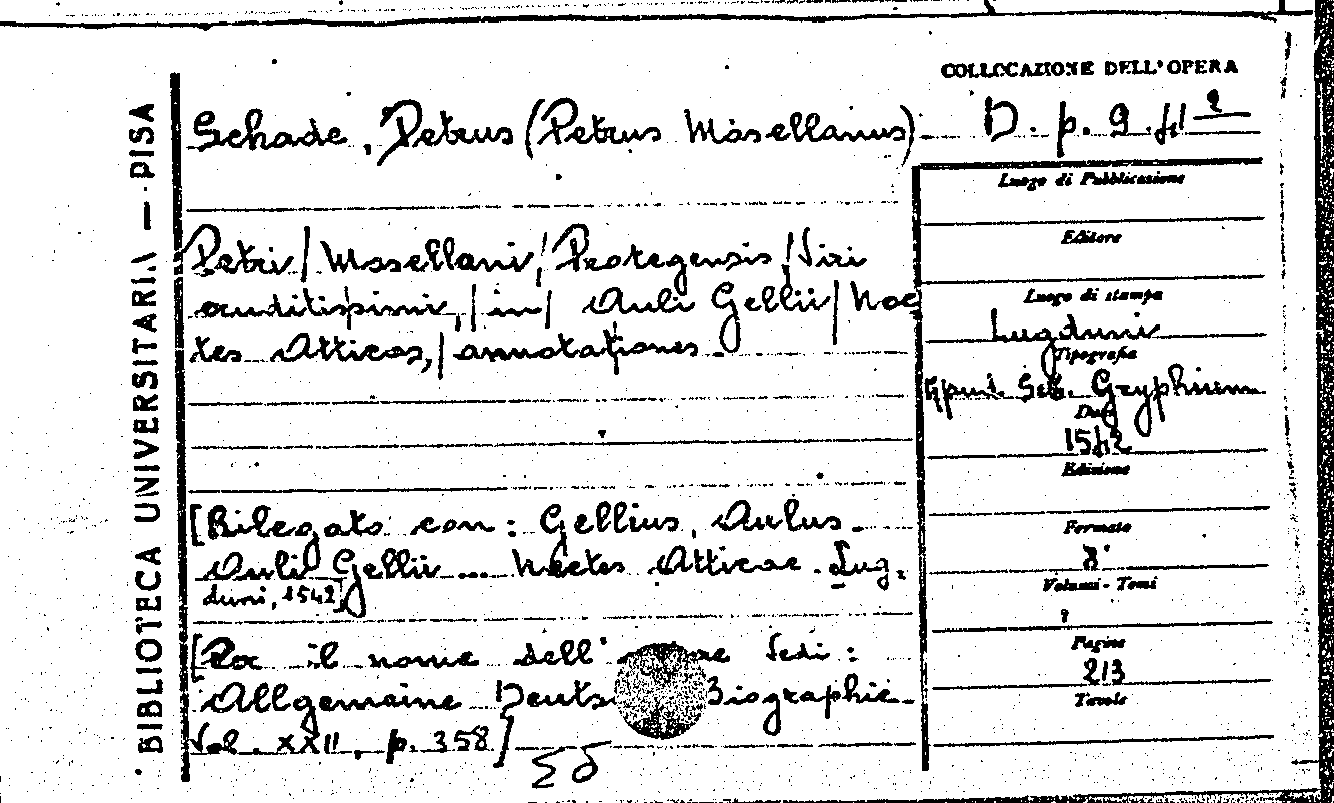 COLLOCAZIONE DELL'OPERA
Schade, Petrus (Petrus Mosellanus)
D. p. 9. 41 2
Petri/Mosellani,/Protegensis,/Viri
eruditissimi,/in/Auli Gellii/Noc
tes Atticas,/annotationes.
[Rilegato con: Gellius, Aulus.
Auli Gellii... Noctes Atticae. Lug.
duni, 1542]
[Per il nome dell' vedi:
Allgemaine Biographie.
Vol. XXII, p. 358]
Luogo di Pubblicazione
Editore
Luogo di stampa
Lugduni
Tipografia
Apud. Seb. Gryphium
Data
1542
Edizione
Formato
8°
Volumi - Tomi
Pagine
213
Tavole
BIBLIOTECA UNIVERSITARIA — PISA